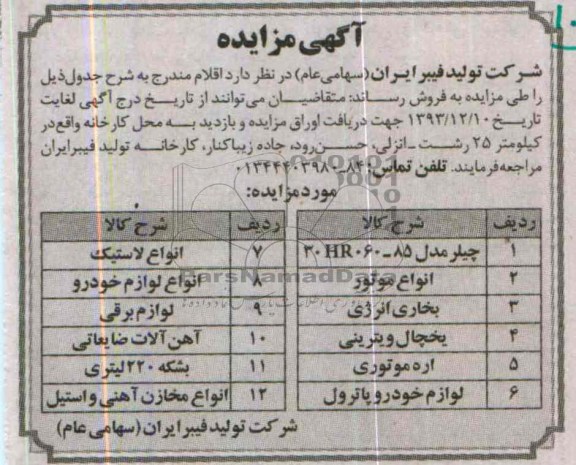 آگهی مزایده
شرکت تولید فیبر ایران (سهامی عام) در نظر دارد اقلام مندرج به شرح جدول ذیل
را طی مزایده به فروش رساند: متقاضیان می توانند از تاریخ درج آگهی لغایت
تاریخ ۱۳۹۳/۱۲/۱۰ جهت دریافت اوراق مزایده و بازدید به محل کارخانه واقع در
کیلومتر ۲۵ رشت ـ انزلی، حسن رود، جاده زیباکنار، کارخانه تولید فیبر ایران
مراجعه فرمایند. تلفن تماس: ۸۴ـ۰۱۳۴۴۴۰۳۹۸۰
مورد مزایده:
ردیف شرح کالا ردیف شرح کالا
۱ چیلر مدل ۸۵ ـ ۰۶۰ HR ۳۰ ۷ انواع لاستیک
۲ انواع موتور ۸ انواع لوازم خودرو
۳ بخاری انرژی ۹ لوازم برقی
۴ یخچال ویترینی ۱۰ آهن آلات ضایعاتی
۵ اره موتوری ۱۱ بشکه ۲۲۰ لیتری
۶ لوازم خودرو پاترول ۱۲ انواع مخازن آهنی و استیل
شرکت تولید فیبر ایران (سهامی عام)
ParsNamadData